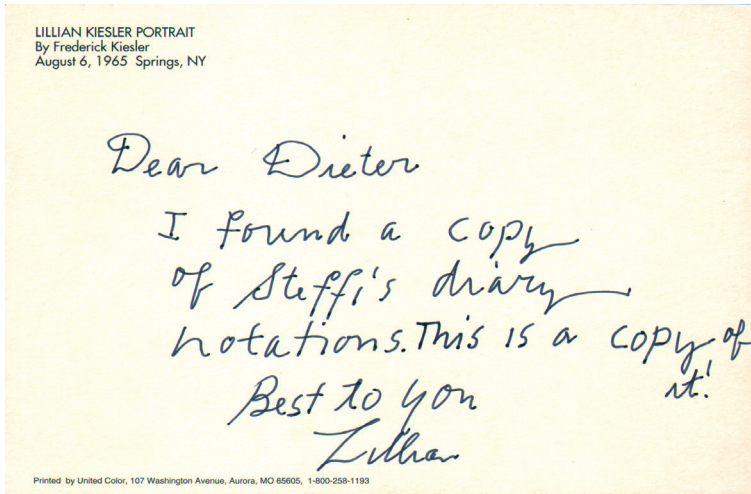 LILLIAN KIESLER PORTRAIT
By Frederick Kiesler
August 6, 1965 Springs, NY
Dear Dieter
I found a copy
of Steffi's diary
notations. This is a copy of
it!
Best to you
Lillian
Printed by United Color, 107 Washington Avenue, Aurora, MO 65605, 1-800-258-1193